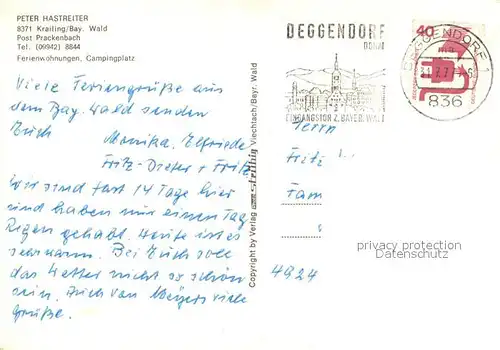 PETER HASTREITER
8371 Krailing/Bay. Wald
Post Prackenbach
Tel. (09942) 8844
Ferienwohnungen, Campingplatz
Viele Feriengrüße aus
dem Bay. Wald senden
Euch
Monika, Elfriede
Fritz-Dieter + Fritz
Wir sind fast 14 Tage hier
und haben nur einen Tag
Regen gehabt. Heute ist es
schwarm. Bei Euch soll
das Wetter nicht so schön
sein. Auch von Meyers viele
Grüße.
Copyright by Verlag Viechtach/Bayr. Wald
DEGGENDORF
DONAU
EINGANGSTOR Z. BAYER. WALD
40
DEGGENDORF 1
836
Herrn
Fritz
Fam
4924
privacy protection
Datenschutz